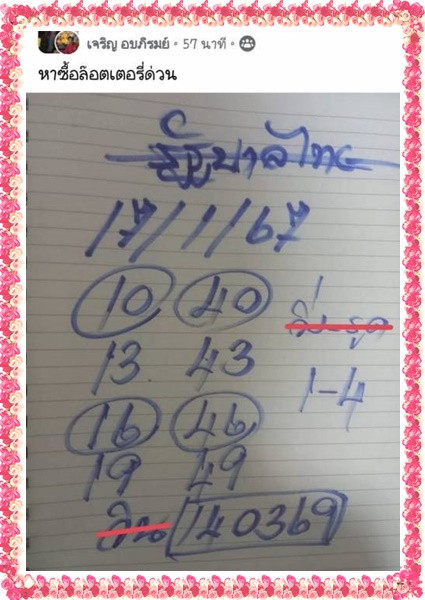 เจริญ อบภิรมย์ • 57 นาที •
หาซื้อล๊อตเตอรี่ด่วน
รัฐบาลไทย
17/1/67
10 40
13 43
1-4
16 46
19 49
วิน 140369